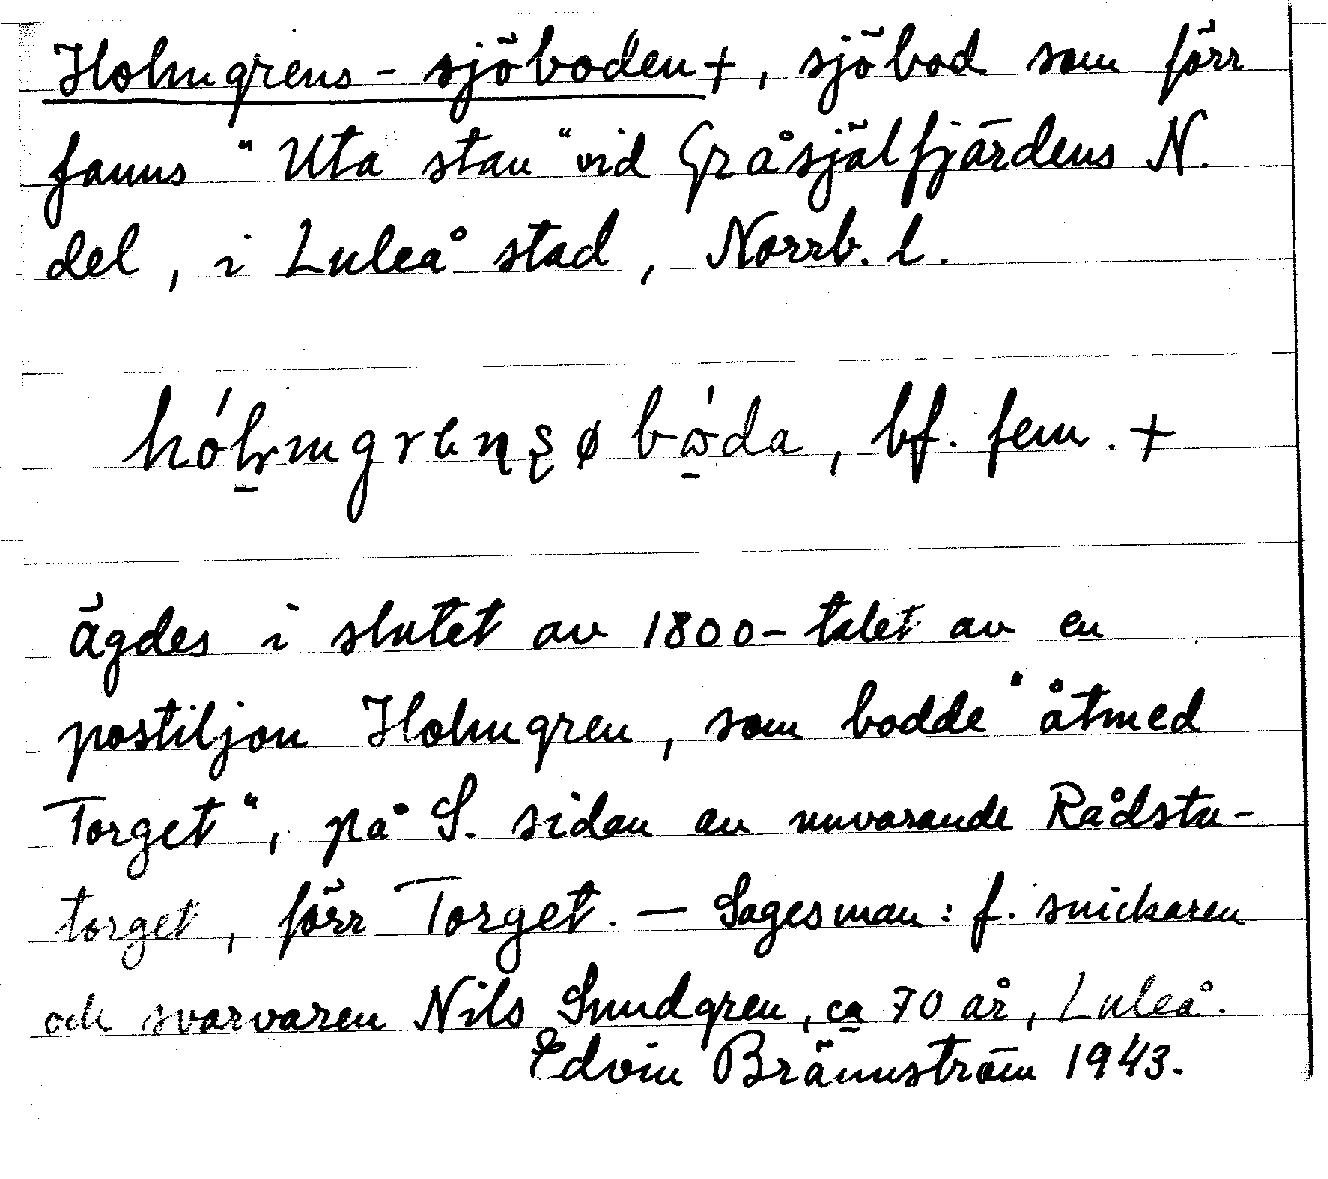 Holmgrens-sjöboden+, sjöbod som förr
fanns "Uta stan" vid Gråsjälfjärdens N.
del, i Luleå stad, Norrb. l.
bf. fem. +
ägdes i slutet av 1800-talet av en
postiljon Holmgren, som bodde "åtmed
Torget", på S. sidan av nuvarande Rådstu-
torget, förr Torget. — Sagesman: f. snickaren
och svarvaren Nils Sundgren, ca 70 år, Luleå.
Edvin Brännström 1943.